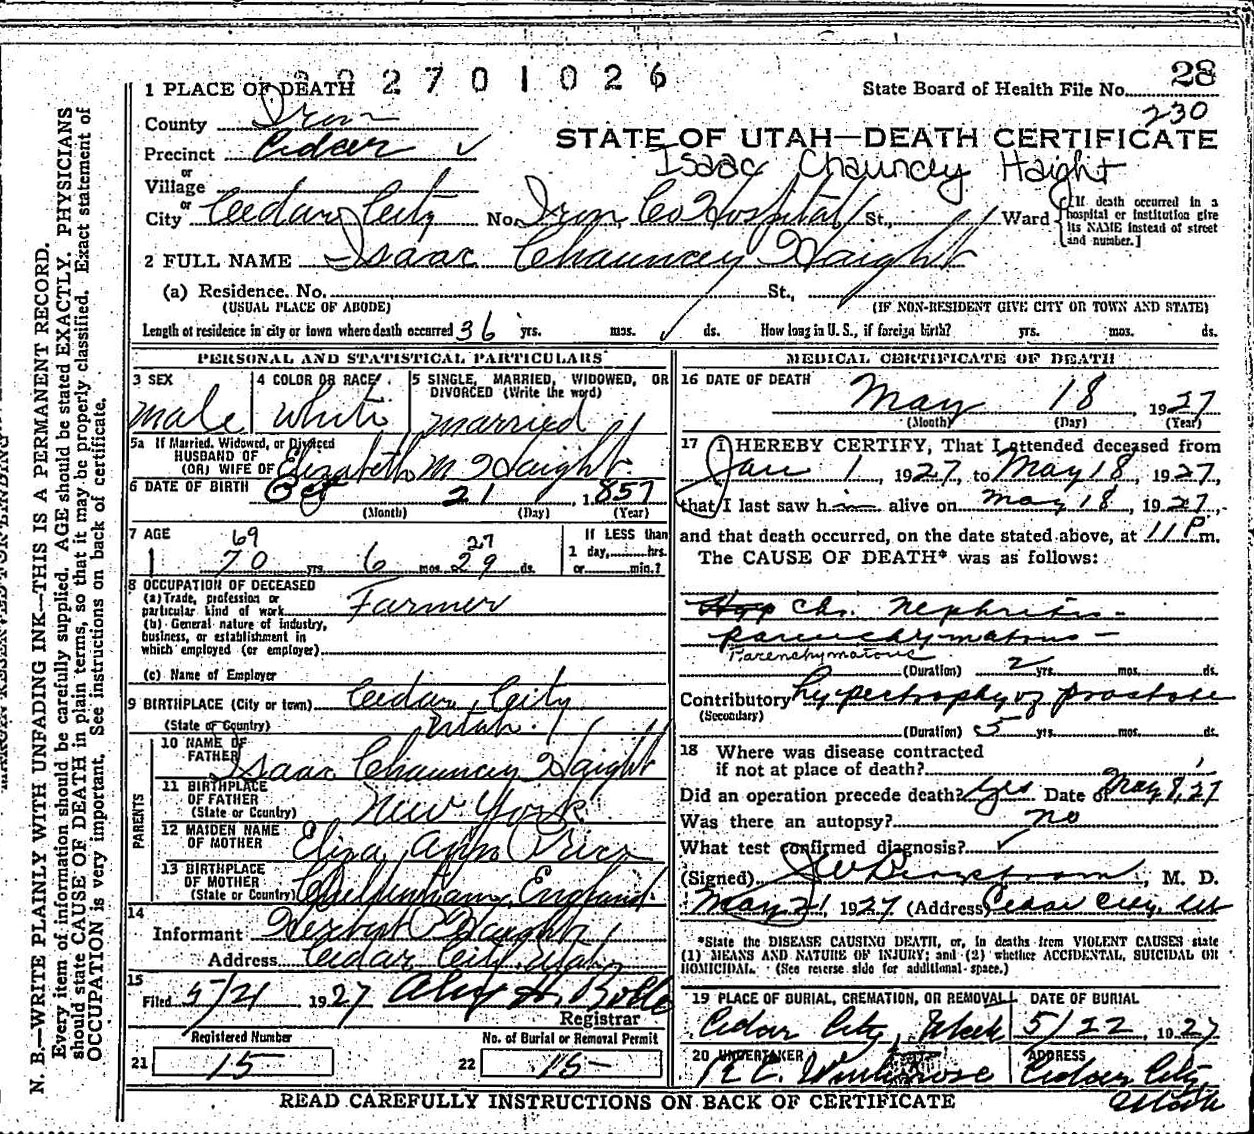 2 7 0 1 0 2 6
1 PLACE OF DEATH
State Board of Health File No. 28
230
County Iron
STATE OF UTAH—DEATH CERTIFICATE
Precinct Cedar ✓
Isaac Chauncey Haight
or
Village
or
City Cedar City No. Iron Co Hospital St., Ward
[If death occurred in a hospital or institution give its NAME instead of street and number.]
2 FULL NAME Isaac Chauncey Haight
(a) Residence. No. St.,
(USUAL PLACE OF ABODE) (IF NON-RESIDENT GIVE CITY OR TOWN AND STATE)
Length of residence in city or town where death occurred 36 yrs. mos. ds. How long in U. S., if foreign birth? yrs. mos. ds.
PERSONAL AND STATISTICAL PARTICULARS
3 SEX
male
4 COLOR OR RACE
white
5 SINGLE, MARRIED, WIDOWED, OR
DIVORCED (Write the word)
married
5a If Married, Widowed, or Divorced
HUSBAND OF
(OR) WIFE OF Elizabeth M Haight
6 DATE OF BIRTH Oct 21 1857
(Month) (Day) (Year)
7 AGE 69 27
70 yrs. 6 mos. 29 ds.
If LESS than
1 day, hrs.
or min.?
8 OCCUPATION OF DECEASED
(a) Trade, profession or
particular kind of work Farmer
(b) General nature of industry,
business, or establishment in
which employed (or employer)
(c) Name of Employer
9 BIRTHPLACE (City or town) Cedar City
(State or Country) Utah.
PARENTS
10 NAME OF
FATHER Isaac Chauncey Haight
11 BIRTHPLACE
OF FATHER
(State or Country) New York
12 MAIDEN NAME
OF MOTHER Eliza Ann Price
13 BIRTHPLACE
OF MOTHER
(State or Country) Cheltenham, England.
14
Informant Herbert Haight
Address Cedar City, Utah
15
Filed 5/21 1927
Registrar
Registered Number
21 15
No. of Burial or Removal Permit
22 15
MEDICAL CERTIFICATE OF DEATH
16 DATE OF DEATH
May 18, 1927
(Month) (Day) (Year)
17 I HEREBY CERTIFY, That I attended deceased from
Jan 1, 1927, to May 18, 1927,
that I last saw him alive on May 18, 1927,
and that death occurred, on the date stated above, at 11 P m.
The CAUSE OF DEATH* was as follows:
Chr. Nephritis-
parenchymatous-
Parenchymatous
(Duration) 2 yrs. mos. ds.
Contributory hypertrophy of prostate
(Secondary)
(Duration) 5 yrs. mos. ds.
18 Where was disease contracted
if not at place of death?
Did an operation precede death? yes Date of May 8, 27
Was there an autopsy? no
What test confirmed diagnosis? ✓
(Signed) J W Bergstrom, M. D.
May 21 1927 (Address) Cedar City, Ut
*State the DISEASE CAUSING DEATH, or, in deaths from VIOLENT CAUSES state
(1) MEANS AND NATURE OF INJURY; and (2) whether ACCIDENTAL, SUICIDAL OR
HOMICIDAL. (See reverse side for additional space.)
19 PLACE OF BURIAL, CREMATION, OR REMOVAL
Cedar City, Utah
DATE OF BURIAL
5/22 1927
20 UNDERTAKER
ADDRESS
Cedar City,
Utah
READ CAREFULLY INSTRUCTIONS ON BACK OF CERTIFICATE
N. B.—WRITE PLAINLY WITH UNFADING INK—THIS IS A PERMANENT RECORD.
Every item of information should be carefully supplied. AGE should be stated EXACTLY. PHYSICIANS
should state CAUSE OF DEATH in plain terms, so that it may be properly classified. Exact statement of
OCCUPATION is very important. See instructions on back of certificate.